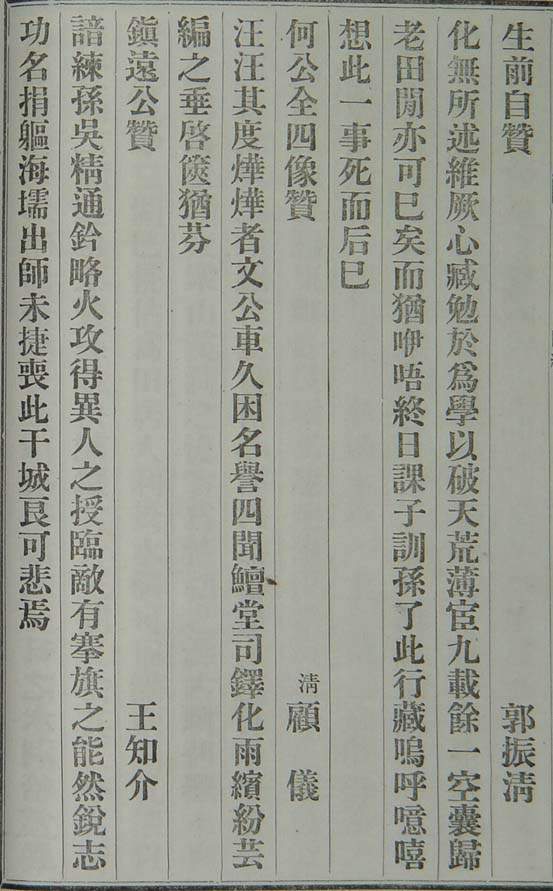 生前自贊 郭振清
化無所述維厥心臧勉於爲學以破天荒薄宦九載餘一空囊歸
老田閒亦可已矣而猶咿唔終日課子訓孫了此行藏嗚呼噫嘻
想此一事死而后已
何公全四像贊 清顧儀
汪汪其度燁燁者文公車久困名譽四聞鱣堂司鐸化雨繽紛芸
編之垂啓篋猶芬
鎭遠公贊 王知介
諳練孫吳精通鈐略火攻得異人之授臨敵有搴旗之能然銳志
功名捐軀海壖出師未捷喪此干城良可悲焉